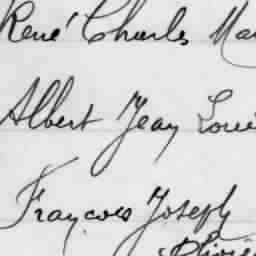 René Charles Mar
Albert Jean Loui
François Joseph
Olivie